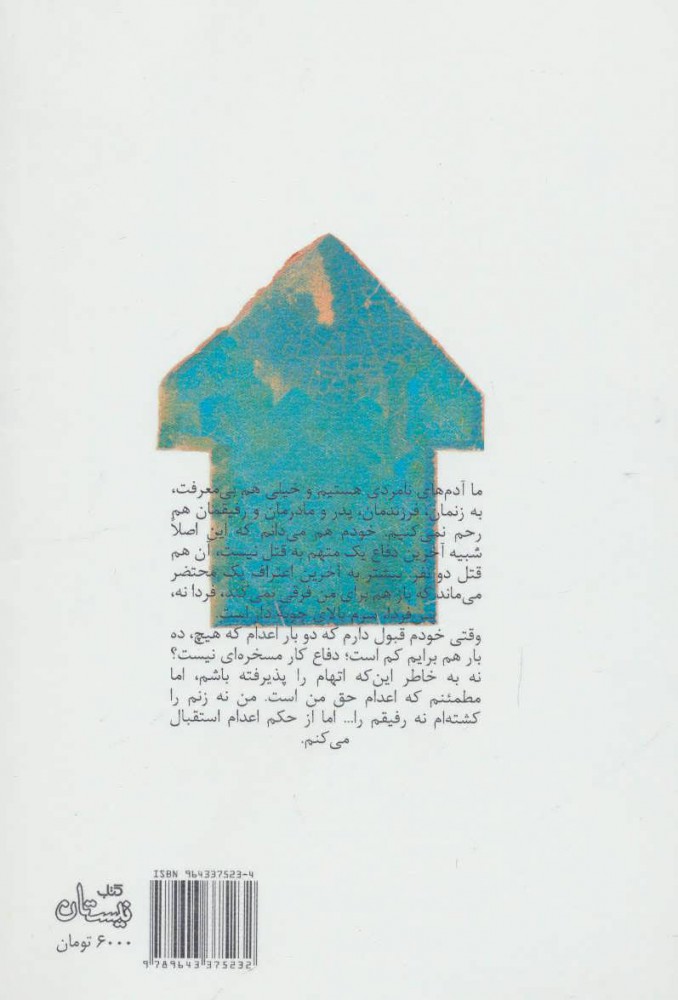 ما آدم‌های نامردی هستیم و خیلی هم بی‌معرفت،
به زنمان، فرزندمان، پدر و مادرمان و رفیقمان هم
رحم نمی‌کنیم. خودم هم می‌دانم که این اصلاً
شبیه آخرین دفاع یک متهم به قتل نیست، آن هم
قتل دو نفر. بیشتر به آخرین اعتراف یک محتضر
می‌ماند که باز هم برای من فرقی نمی‌کند، فردا نه،
پس فردا سرم بالای چوبه دار است.
وقتی خودم قبول دارم که دو بار اعدام که هیچ، ده
بار هم برایم کم است؛ دفاع کار مسخره‌ای نیست؟
نه به خاطر این‌که اتهام را پذیرفته باشم، اما
مطمئنم که اعدام حق من است. من نه زنم را
کشته‌ام نه رفیقم را... اما از حکم اعدام استقبال
می‌کنم.
ISBN 964337523-4
9 789643 375232
کتاب
نیستان
۶۰۰۰ تومان